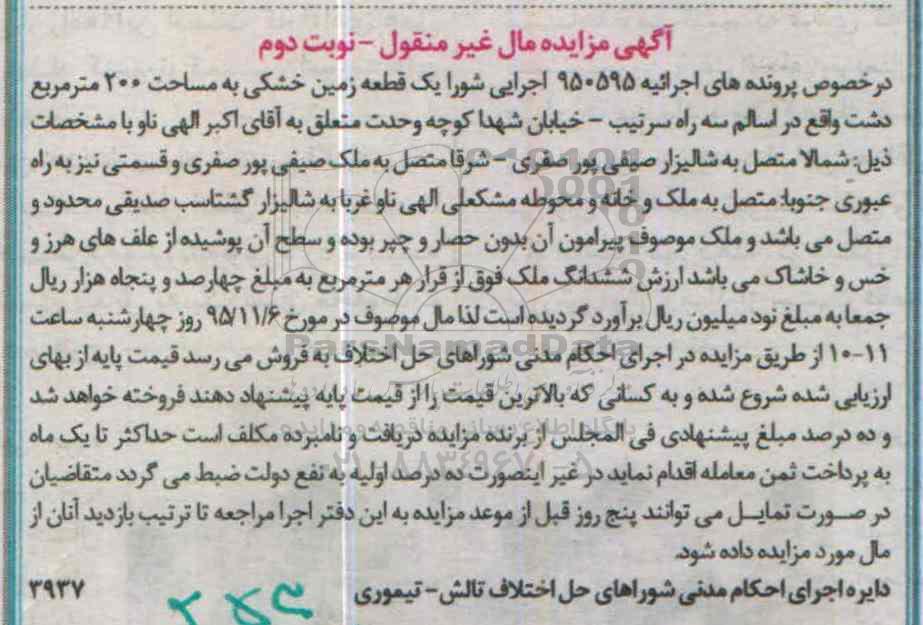 آگهی مزایده مال غیر منقول - نوبت دوم
درخصوص پرونده های اجرائیه ۹۵۰۵۹۵ اجرایی شورا یک قطعه زمین خشکی به مساحت ۲۰۰ مترمربع
دشت واقع در اسالم سه راه سرتیب - خیابان شهدا کوچه وحدت متعلق به آقای اکبر الهی ناو با مشخصات
ذیل: شمالا متصل به شالیزار صیفی پور صفری - شرقا متصل به ملک صیفی پور صفری و قسمتی نیز به راه
عبوری جنوبا: متصل به ملک و خانه و محوطه مشکعلی الهی ناو غربا به شالیزار گشتاسب صدیقی محدود و
متصل می باشد و ملک موصوف پیرامون آن بدون حصار و چپر بوده و سطح آن پوشیده از علف های هرز و
خس و خاشاک می باشد ارزش ششدانگ ملک فوق از قرار هر مترمربع به مبلغ چهارصد و پنجاه هزار ریال
جمعا به مبلغ نود میلیون ریال برآورد گردیده است لذا مال موصوف در مورخ ۹۵/۱۱/۶ روز چهارشنبه ساعت
۱۱-۱۰ از طریق مزایده در اجرای احکام مدنی شوراهای حل اختلاف به فروش می رسد قیمت پایه از بهای
ارزیابی شده شروع شده و به کسانی که بالاترین قیمت را از قیمت پایه پیشنهاد دهند فروخته خواهد شد
و ده درصد مبلغ پیشنهادی فی المجلس از برنده مزایده دریافت و نامبرده مکلف است حداکثر تا یک ماه
به پرداخت ثمن معامله اقدام نماید در غیر اینصورت ده درصد اولیه به نفع دولت ضبط می گردد متقاضیان
در صورت تمایل می توانند پنج روز قبل از موعد مزایده به این دفتر اجرا مراجعه تا ترتیب بازدید آنان از
مال مورد مزایده داده شود.
دایره اجرای احکام مدنی شوراهای حل اختلاف تالش - تیموری ۳۹۳۷
ParsNamadData